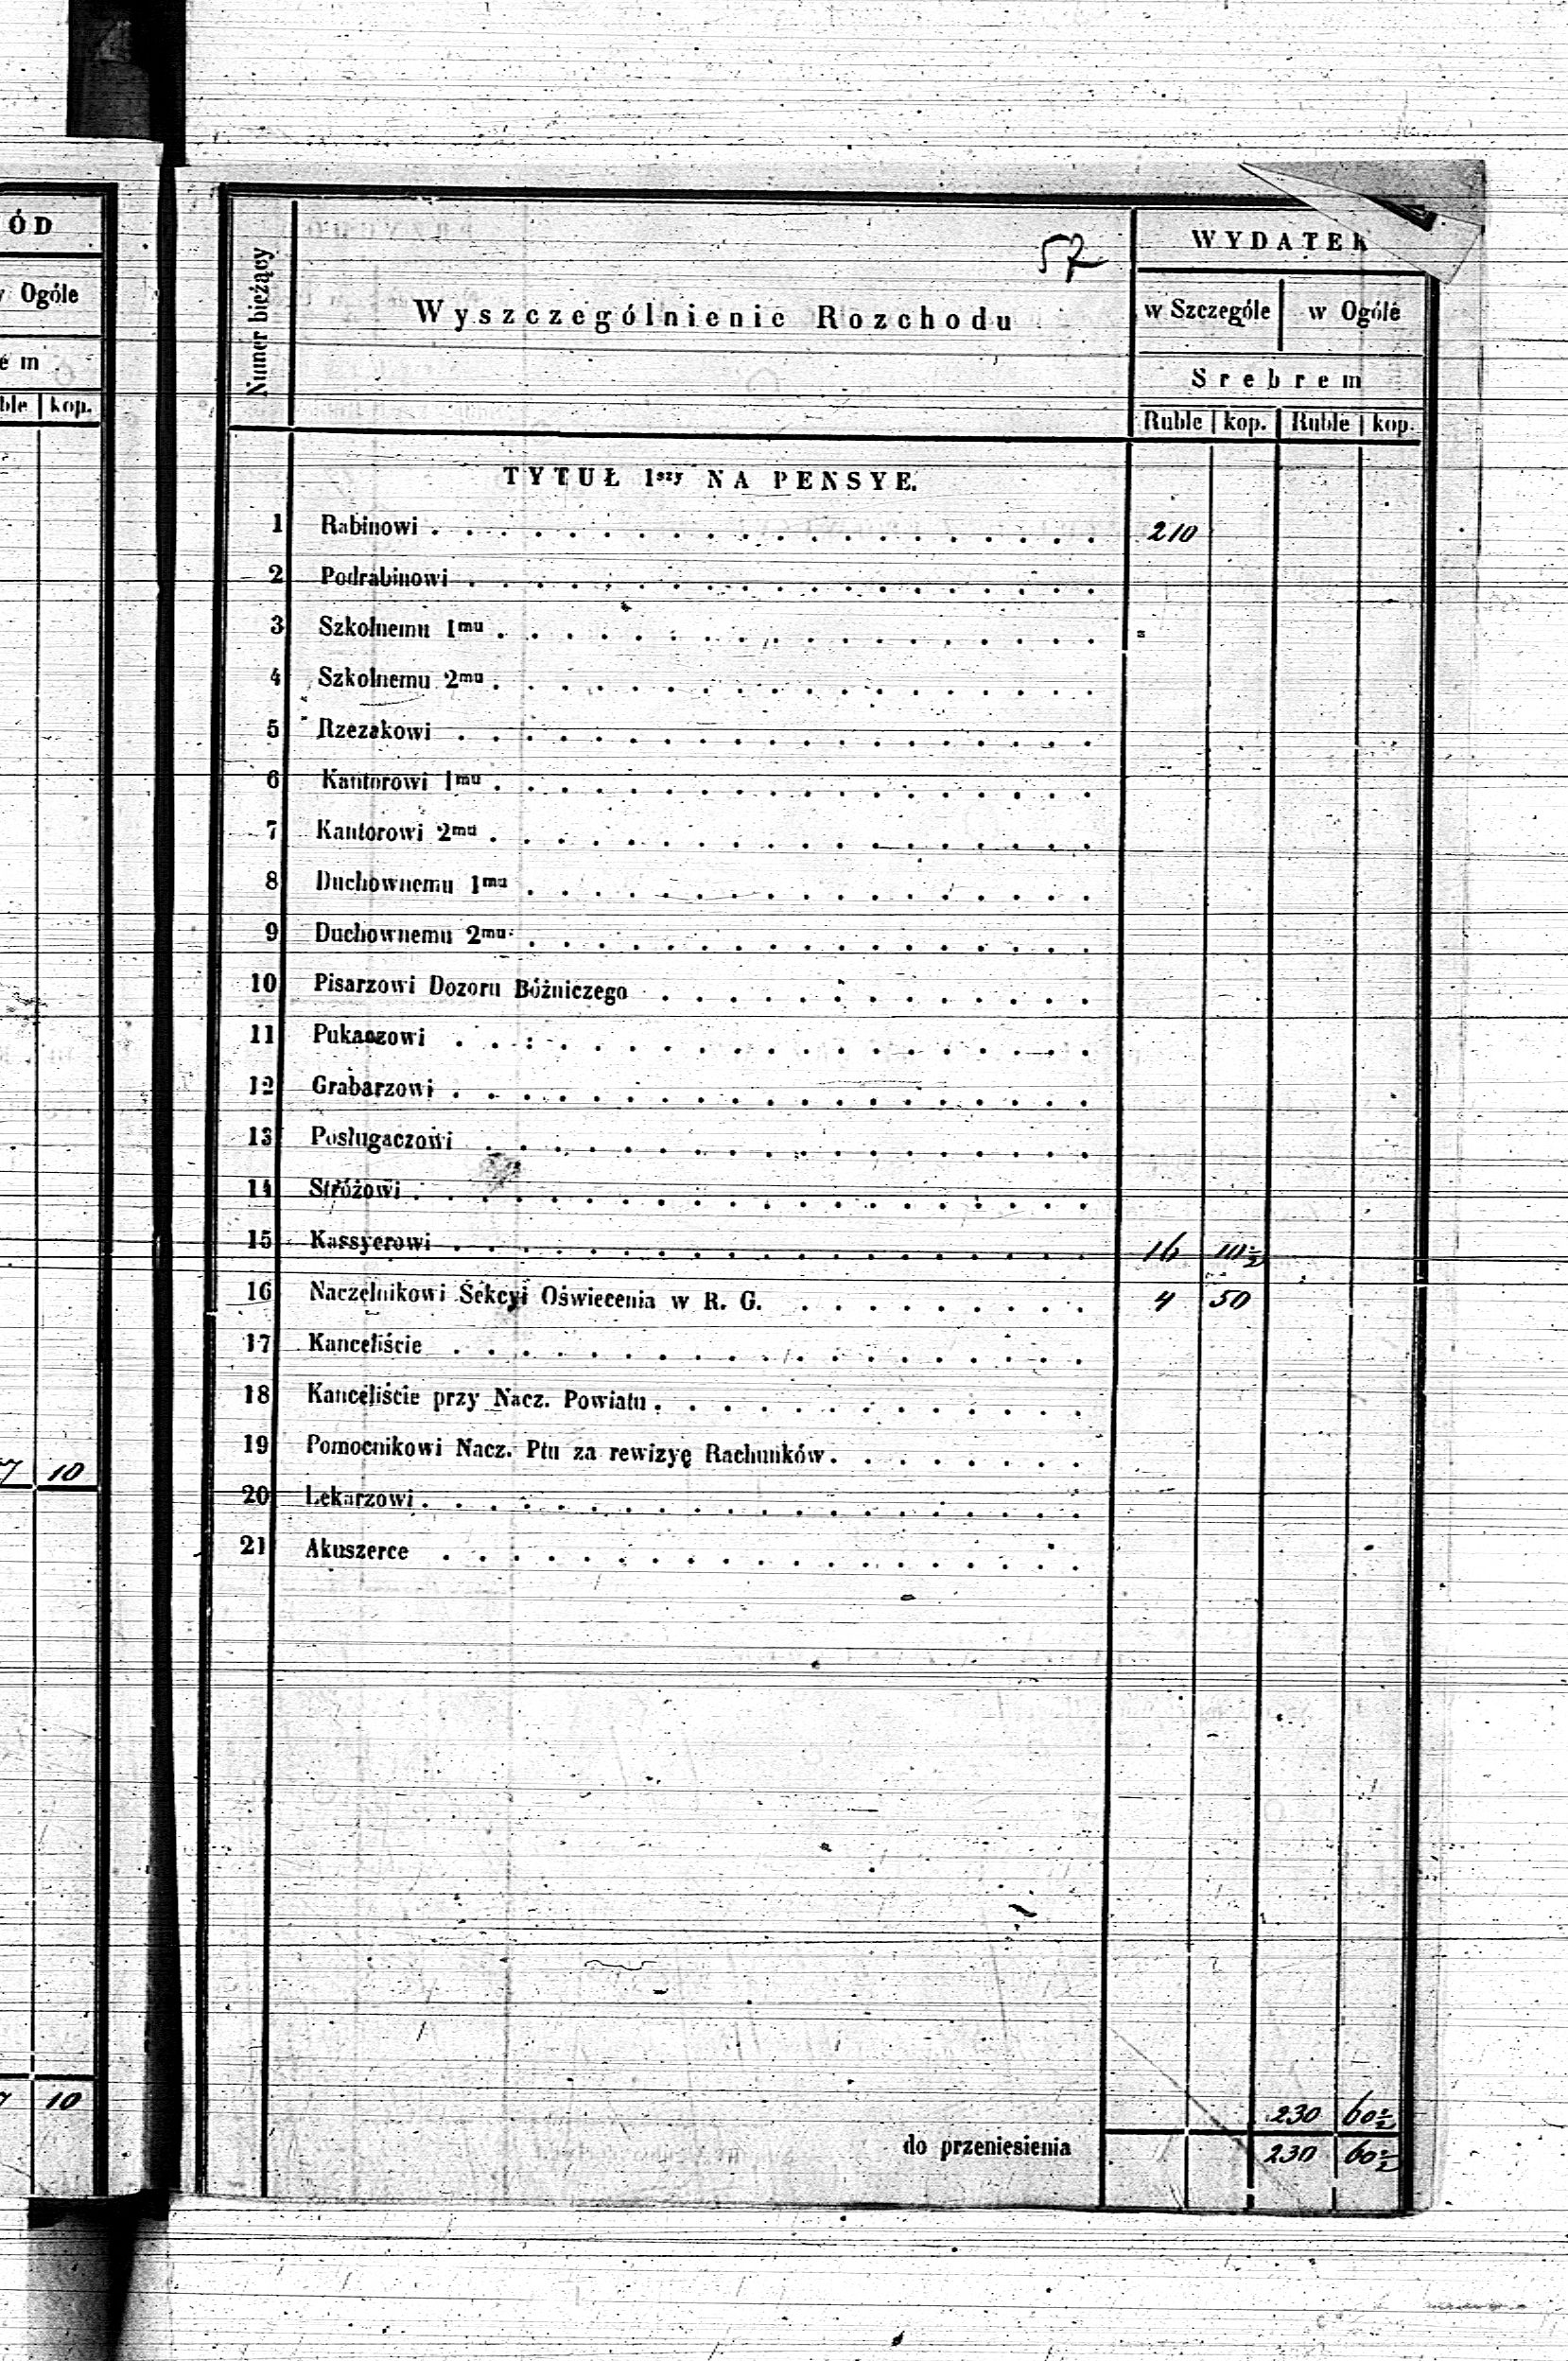 ÓD
Ogóle
em
ble kop.
10
10
57
Numer bieżący
Wyszczególnienie Rozchodu
WYDATEK
w Szczególe w Ogóle
Srebrem
Ruble kop. Ruble kop.
TYTUŁ 1szy NA PENSYE.
1 Rabinowi . . . 210
2 Podrabinowi . . .
3 Szkolnemu 1mu . . .
4 Szkolnemu 2mu . . .
5 Rzezakowi . . .
6 Kantorowi 1mu . . .
7 Kantorowi 2mu . . .
8 Duchownemu 1mu . . .
9 Duchownemu 2mu . . .
10 Pisarzowi Dozoru Bóżniczego . . .
11 Pukaczowi . . .
12 Grabarzowi . . .
13 Posługaczowi . . .
14 Stróżowi . . .
15 Kassyerowi . . . 16 10½
16 Naczelnikowi Sekcyi Oświecenia w R. G. . . . 4 50
17 Kanceliście . . .
18 Kanceliście przy Nacz. Powiatu . . .
19 Pomocnikowi Nacz. Ptu za rewizyę Rachunków . . .
20 Lekarzowi . . .
21 Akuszerce . . .
230 60½
do przeniesienia 230 60½